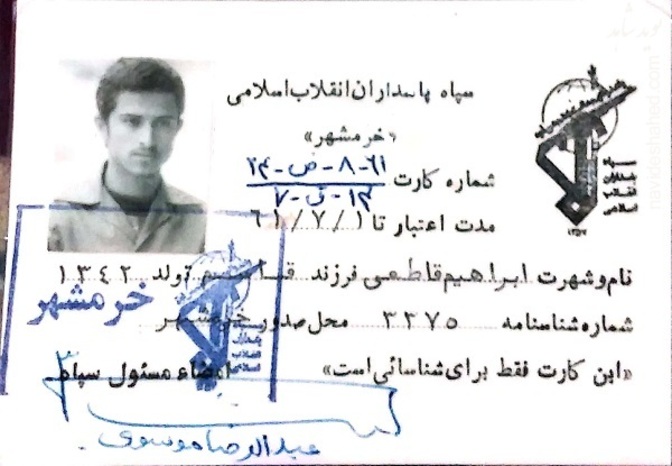 سپاه پاسداران انقلاب اسلامی
«خرمشهر»
شماره کارت ۲۴-ض-۸-۶۱
۱۲-ق-۷
مدت اعتبار تا ۶۱/۷/۱
نام و شهرت ابراهیم قاطعی فرزند قاسم تولد ۱۳٤۲
شماره شناسنامه ۳۳۷۵ محل صدور خرمشهر
«این کارت فقط برای شناسائی است» امضاء مسئول سپاه
عبدالرضا موسوی
خرمشهر
سپاه
پاسداران
انقلاب
اسلامی
navideshahed.com